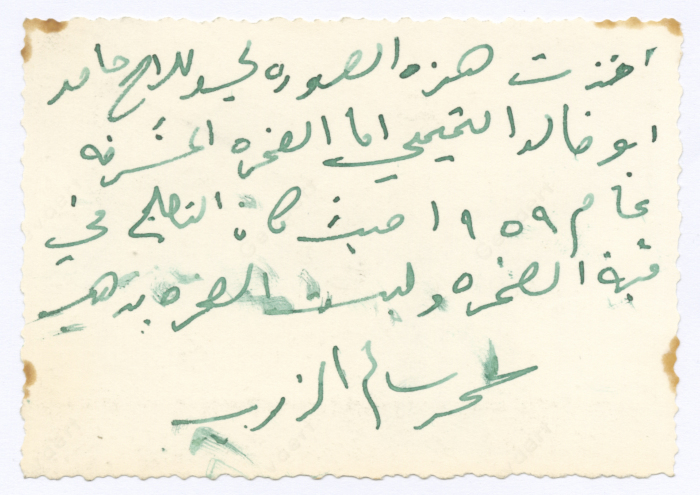 أخذت هذه الصوره لجدو الحاج حامد
ابو خالد التميمي امام الصخره المشرفه
عام ١٩٥٩ حيث كان التصليح في
قبة الصخره ولبست الصخره بدهب
سالم الزرب